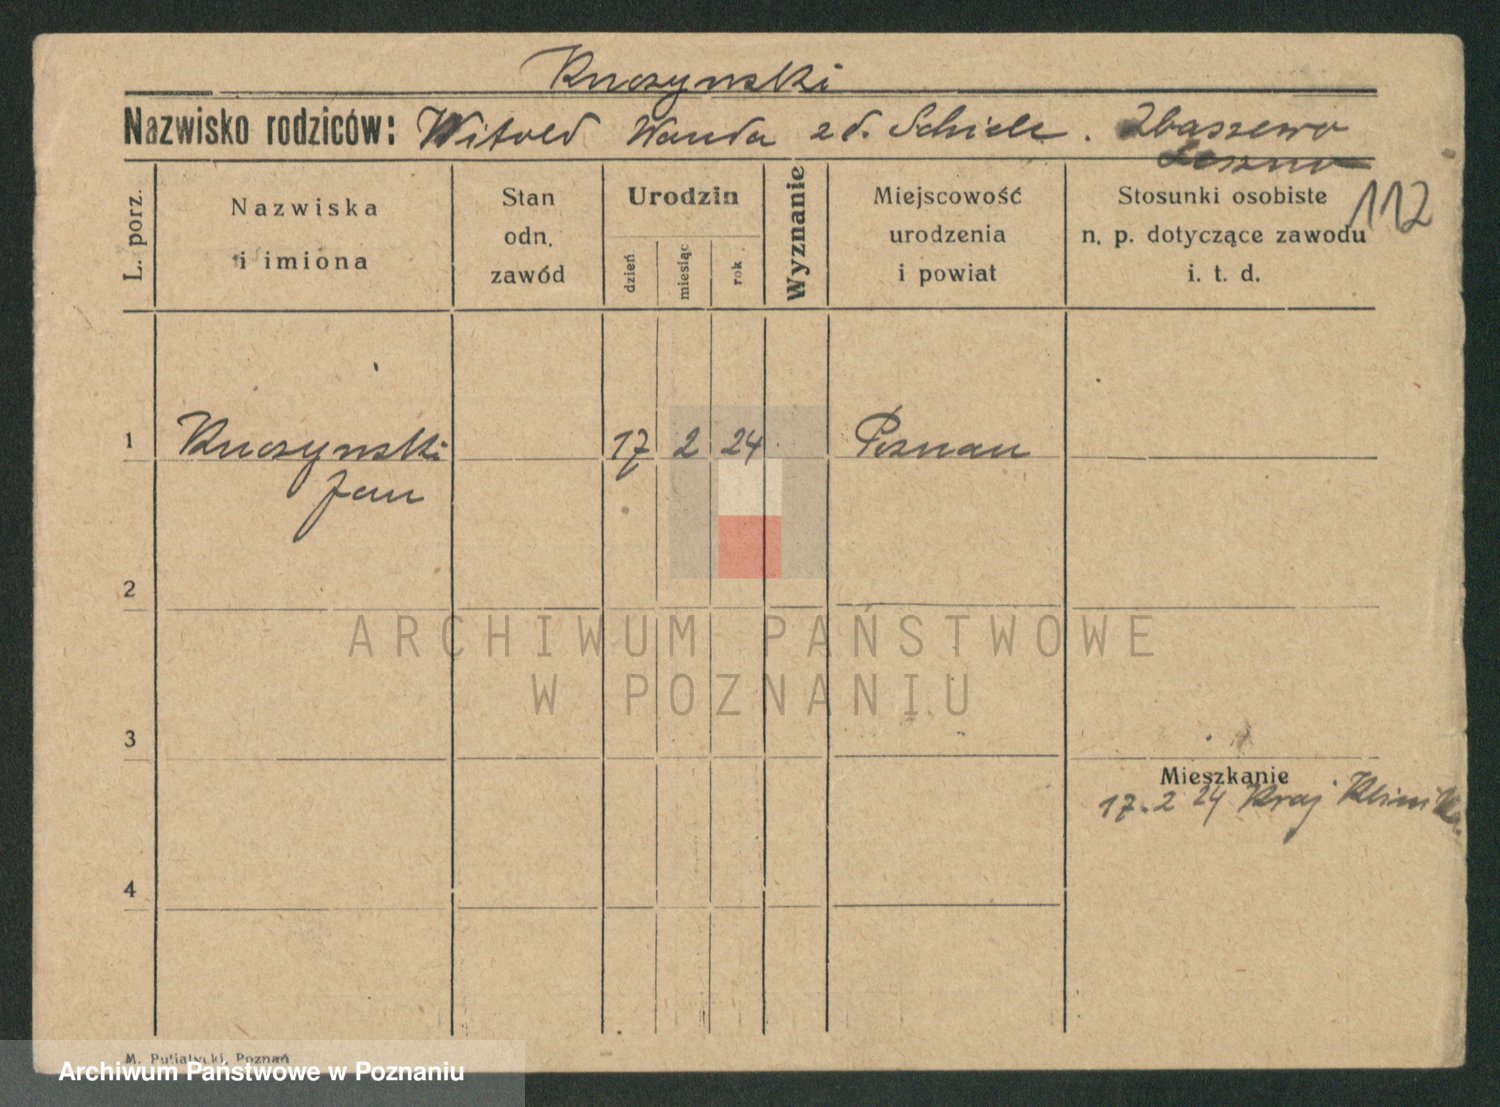 Kuczynski
Nazwisko rodziców: Witold Wanda zd. Schiele. Zbąszewo
Leszno
112
L. porz.
Nazwiska
i imiona
Stan
odn.
zawód
Urodzin
dzień
miesiąc
rok.
Wyznanie
Miejscowość
urodzenia
i powiat
Stosunki osobiste
n. p. dotyczące zawodu
i. t. d.
1 Kuczynski 17 2 24 Poznań
Jan
2
ARCHIWUM PAŃSTWOWE
W POZNANIU
3
Mieszkanie
17. 2 24 Kraj Klinika
4
M. Putiatycki, Poznań
Archiwum Państwowe w Poznaniu